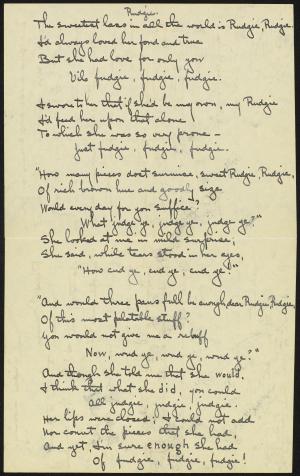 Rudgie.
The sweetest lass in all the world is Rudgie, Rudgie.
I'd always loved her fond and true
But she had love for only you
Vile fudgie, fudgie, fudgie.
I swore to her that if she'd be my own, my Rudgie
I'd feed her upon that alone
To which she was so very prone —
Just fudgie, fudgie, fudgie.
"How many pieces dost surmise, sweet Rudgie, Rudgie,
Of rich brown hue and goodly size
Would every day for you suffice?
What judge ye, judge ye, judge ye?"
She looked at me in mild surprise;
She said, while tears stood in her eyes,
"How cud ye, cud ye, cud ye!"
"And would three pans full be enough, dear Rudgie, Rudgie,
Of this most palatable stuff?
You would not give me a rebuff
Now, wud ye, wud ye, wud ye?"
And though she told me that she would,
I think that what she did, you could
All judgie, judgie, judgie.
Her lips were closed; I could not add
Nor count the pieces that she had,
And yet, I'm sure enough she had
Of fudgie, fudgie, fudgie!